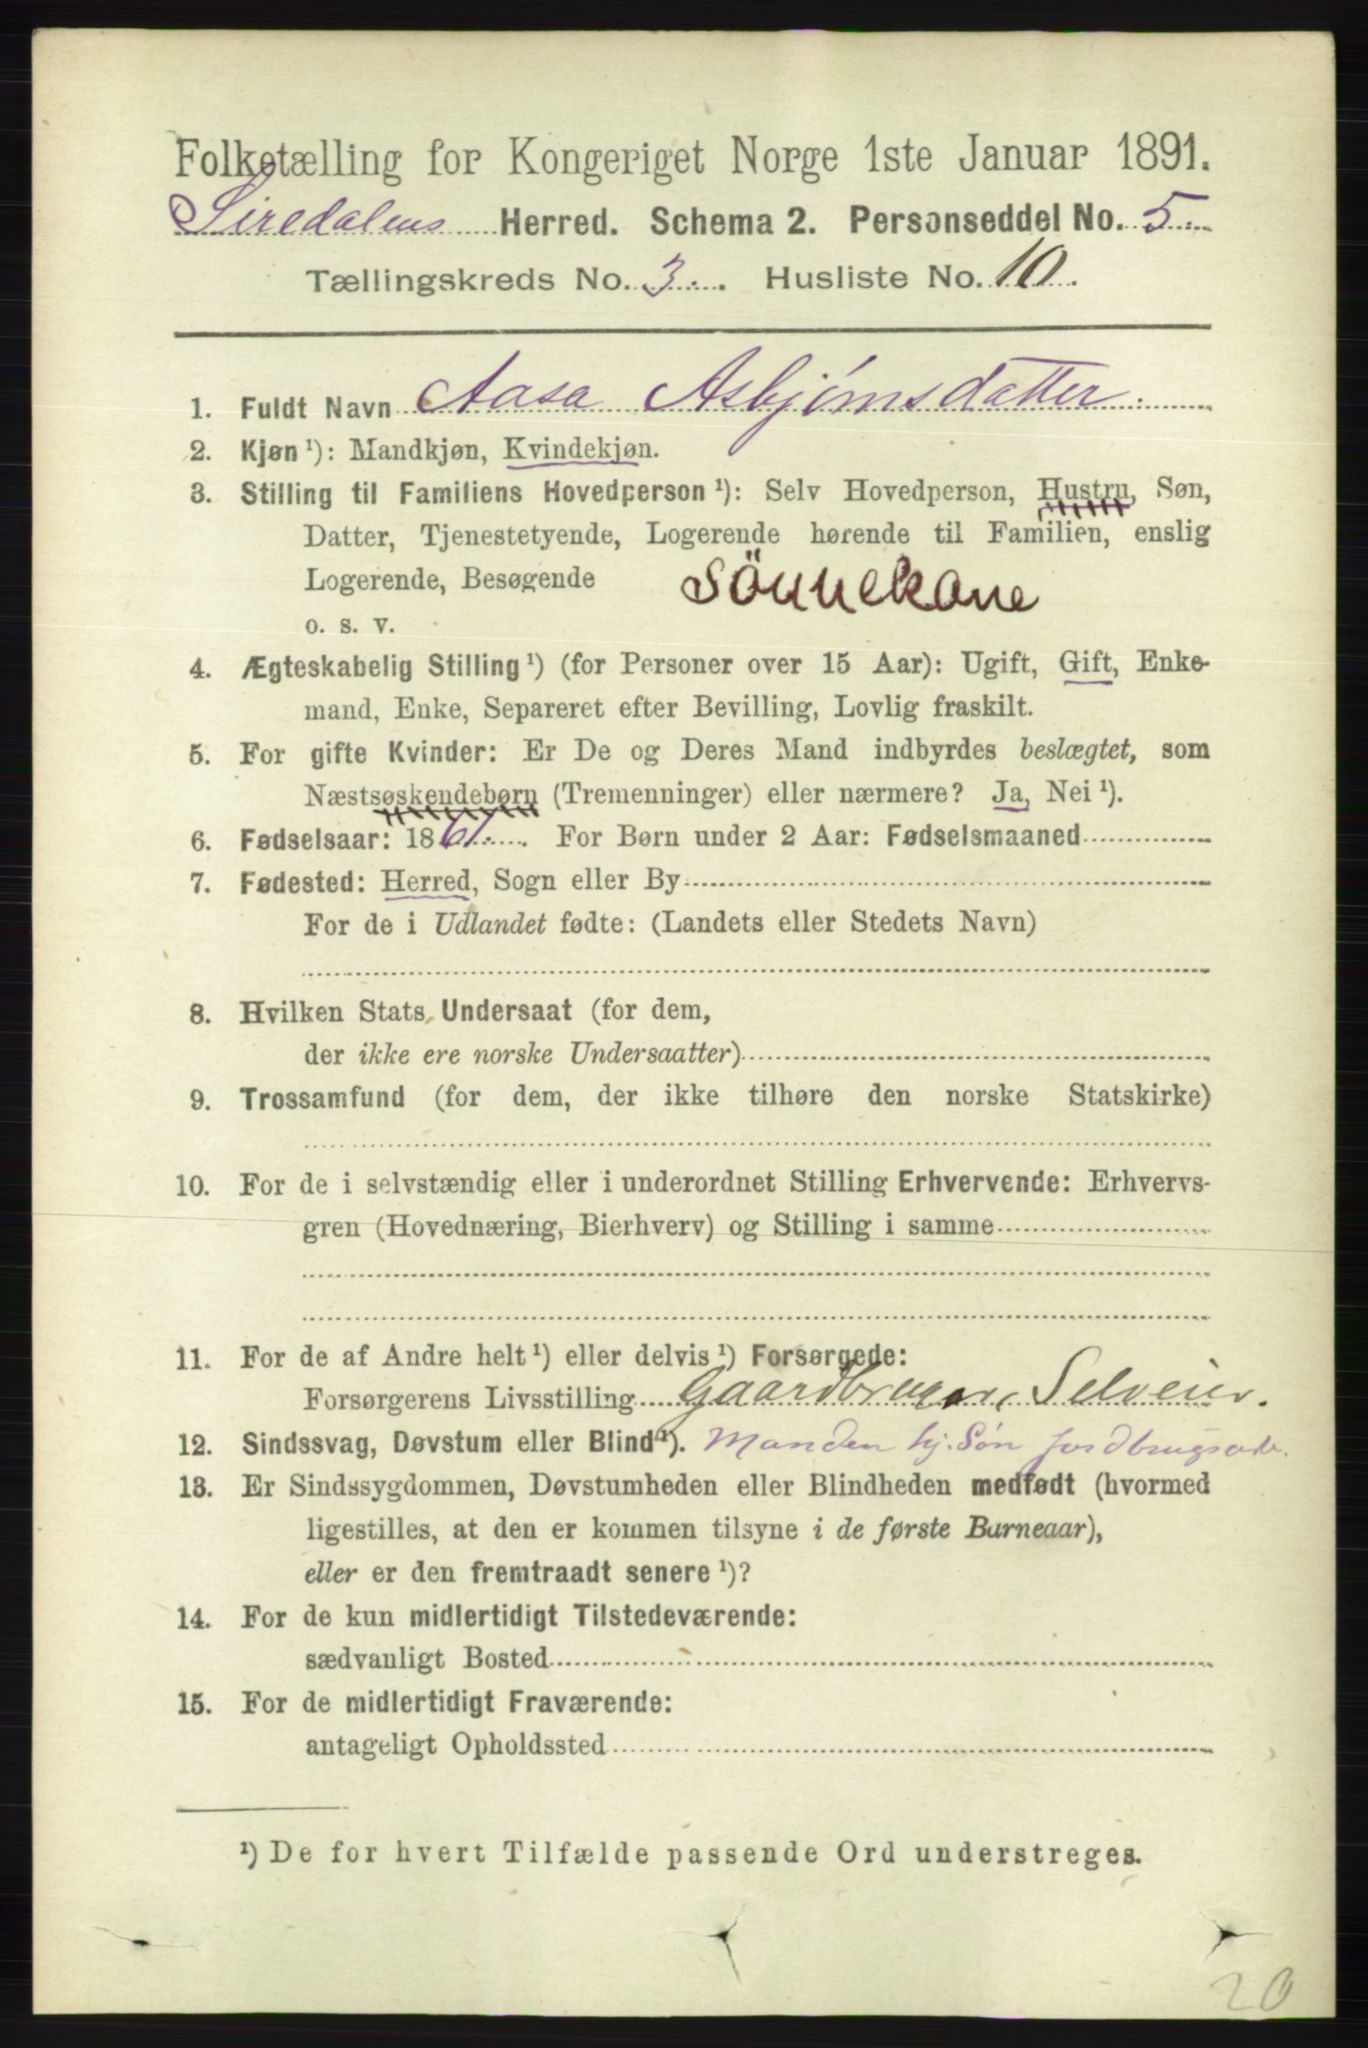 Folketælling for Kongeriget Norge 1ste Januar 1891.
Siredalens Herred. Schema 2. Personseddel No. 5.
Tællingskreds No. 3. Husliste No. 10.
1. Fuldt Navn Aasa Asbjörnsdatter.
2. Kjøn ¹): Mandkjøn, Kvindekjøn.
3. Stilling til Familiens Hovedperson ¹): Selv Hovedperson, Hustru, Søn,
Datter, Tjenestetyende, Logerende hørende til Familien, enslig
Logerende, Besøgende Sönnekone
o. s. v.
4. Ægteskabelig Stilling ¹) (for Personer over 15 Aar): Ugift, Gift, Enke-
mand, Enke, Separeret efter Bevilling, Lovlig fraskilt.
5. For gifte Kvinder: Er De og Deres Mand indbyrdes beslægtet, som
Næstsøskendebørn (Tremenninger) eller nærmere? Ja, Nei ¹).
6. Fødselsaar: 1861. For Børn under 2 Aar: Fødselsmaaned
7. Fødested: Herred, Sogn eller By
For de i Udlandet fødte: (Landets eller Stedets Navn)
8. Hvilken Stats Undersaat (for dem,
der ikke ere norske Undersaatter)
9. Trossamfund (for dem, der ikke tilhøre den norske Statskirke)
10. For de i selvstændig eller i underordnet Stilling Erhvervende: Erhvervs-
gren (Hovednæring, Bierhverv) og Stilling i samme
11. For de af Andre helt ¹) eller delvis ¹) Forsørgede:
Forsørgerens Livsstilling Gaardbruger, Selveier.
12. Sindssvag, Døvstum eller Blind ¹). Manden hj. Søn Jordbrugsarb.
13. Er Sindssygdommen, Døvstumheden eller Blindheden medfødt (hvormed
ligestilles, at den er kommen tilsyne i de første Barneaar),
eller er den fremtraadt senere ¹)?
14. For de kun midlertidigt Tilstedeværende:
sædvanligt Bosted
15. For de midlertidigt Fraværende:
antageligt Opholdssted
¹) De for hvert Tilfælde passende Ord understreges.
20